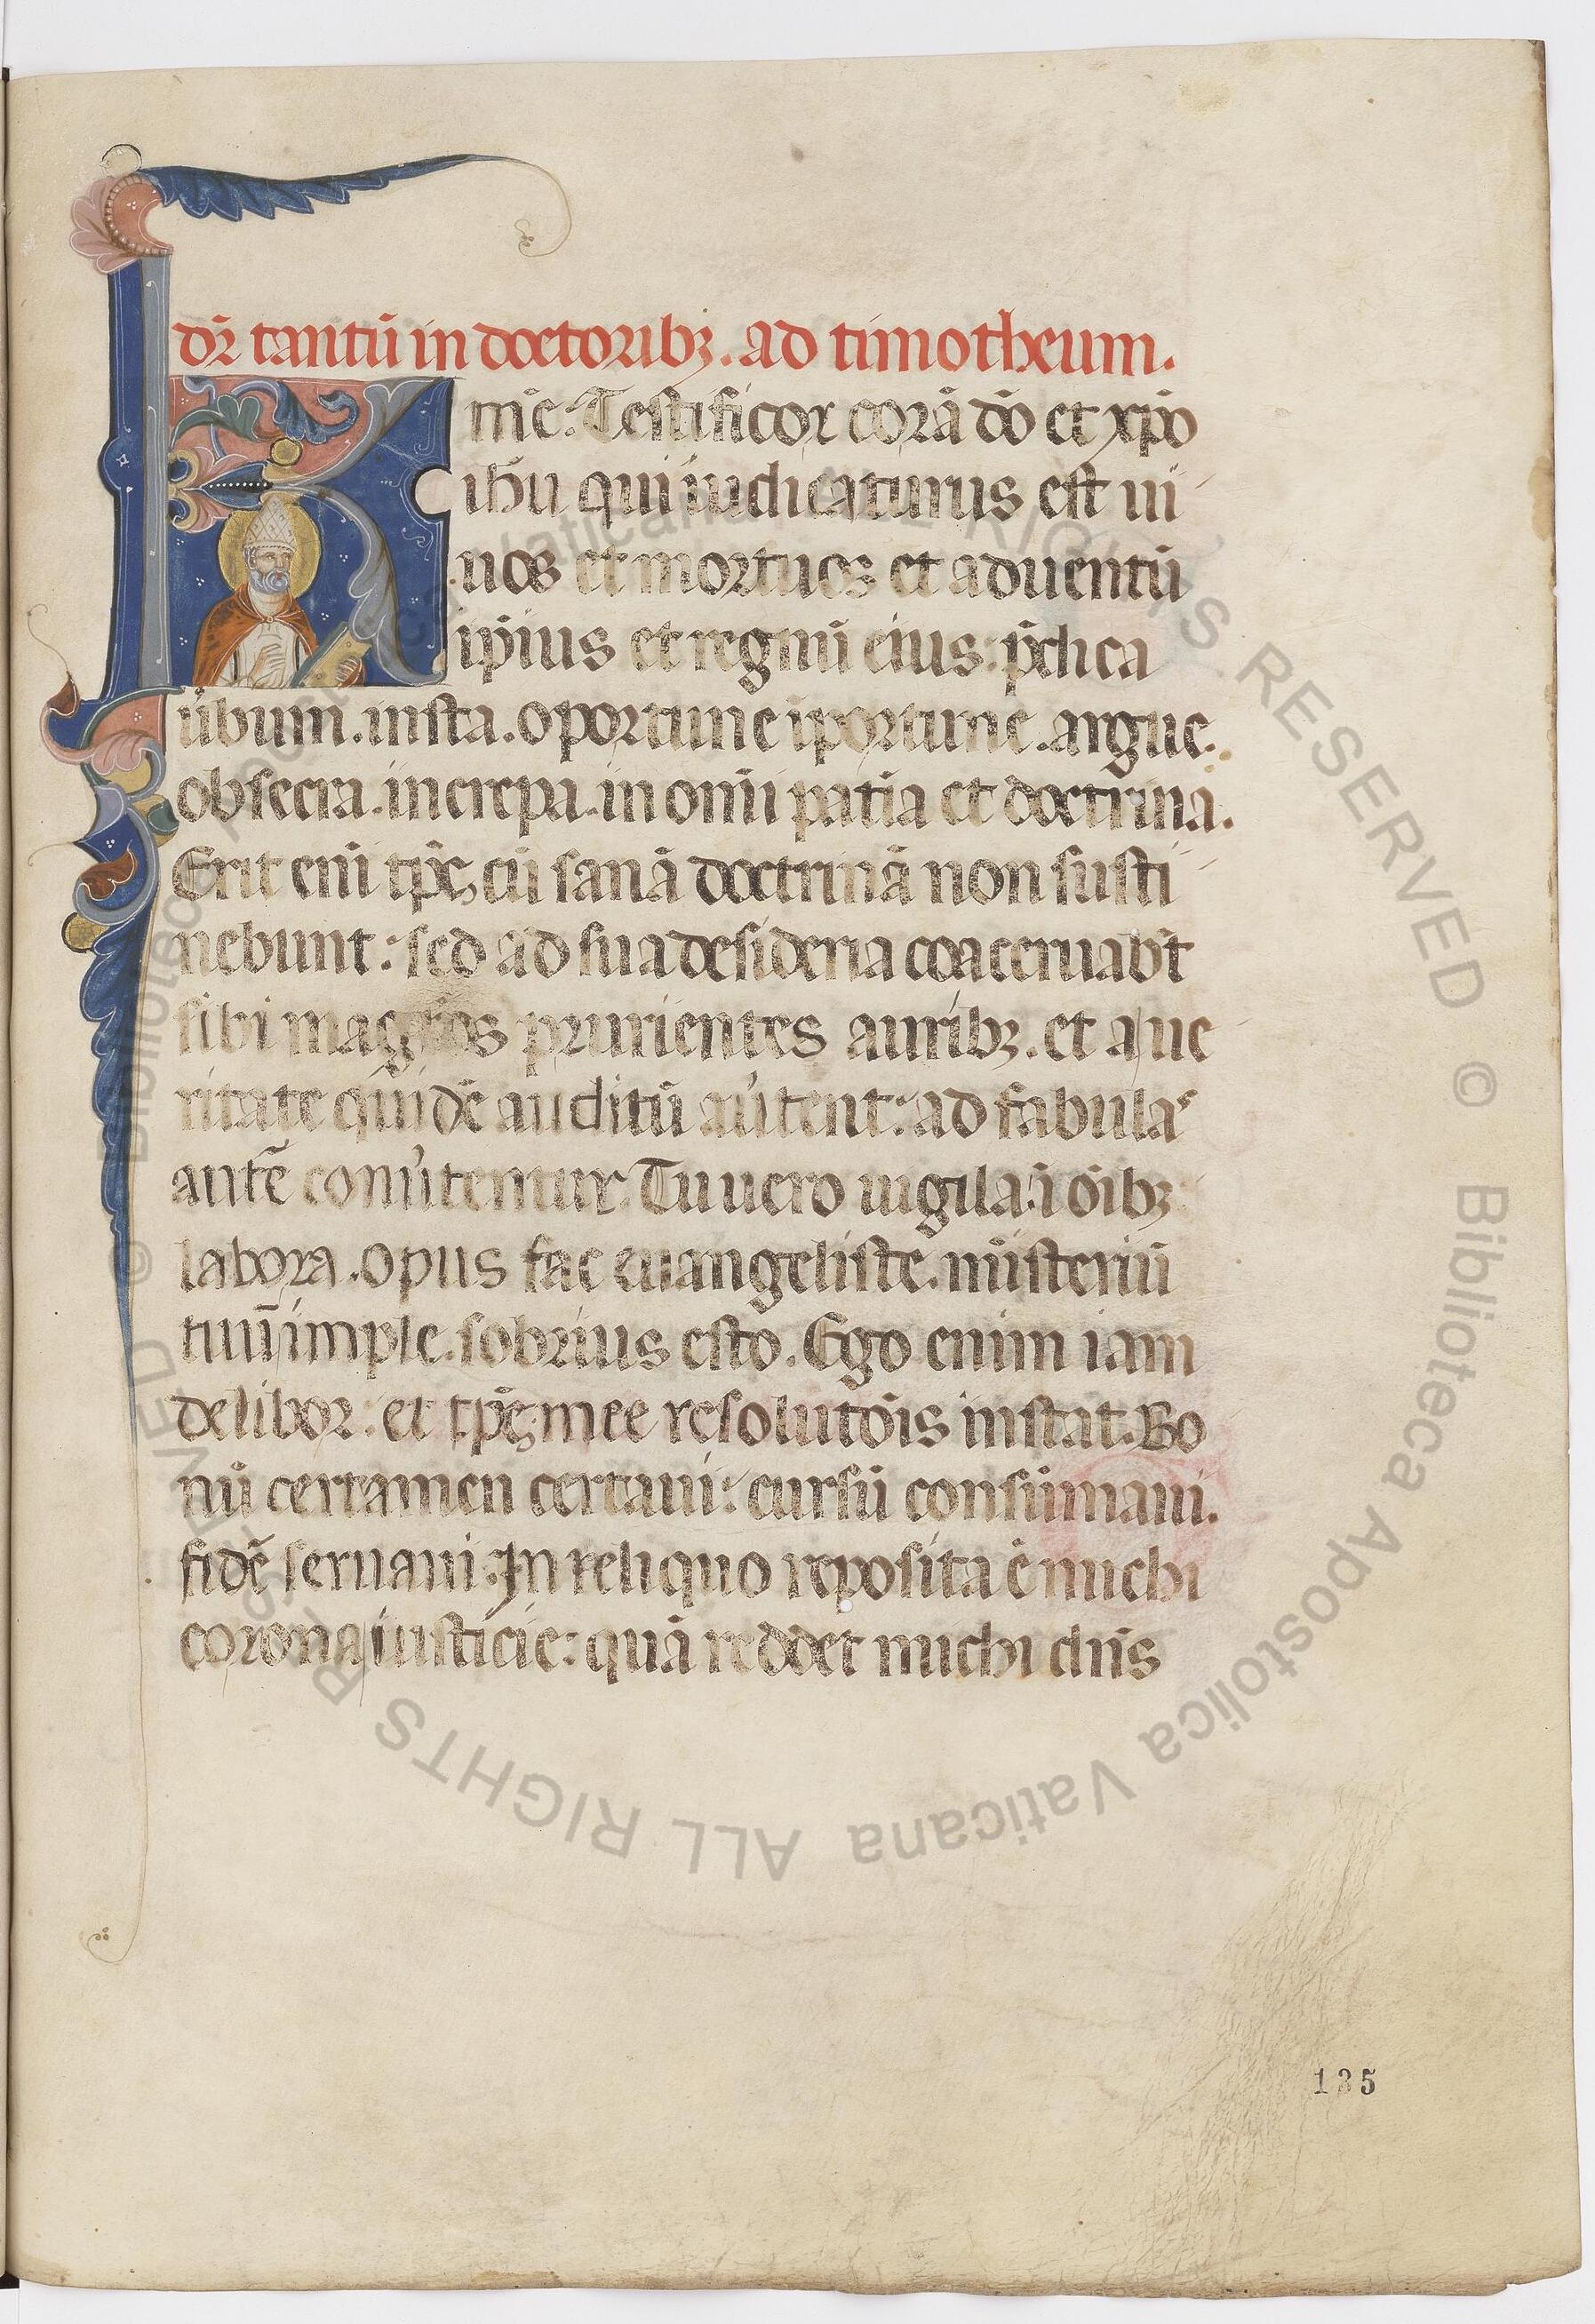 dr̄ tantū in doctoribꝫ. ad timotheum.
K
mē. Testificor corā dō et xp̄o
ih̄u qui iudicaturus est ui
uos et mortuos et aduentū
ip̄ius et regnū eius: p̄dica
ūbum. insta. oportune īportune. argue.
obsecra. increpa. in om̄i patīa et doctrina.
Erit eni tp̄s cū sanā doctrinā non susti
nebunt: sed ad sua desideria coaceruabt̄
sibi magr̄os prurientes auribꝫ. et a ue
ritate quidē auditū au̓tent: ad fabulas
autē conu̓tentur. Tu uero uigila. ī oībꝫ
labora. opus fac euangeliste. mīsteriū
tuū imple. sobrius esto. Ego enim iam
delibor: et tp̄s mee resolutōis instat. Bo
nū certamen certaui: cursū consūmaui.
fidē seruaui. In reliquo reposita ē michi
corona iusticie: quā reddet michi dn̄s
135
© Biblioteca Apostolica Vaticana ALL RIGHTS RESERVED